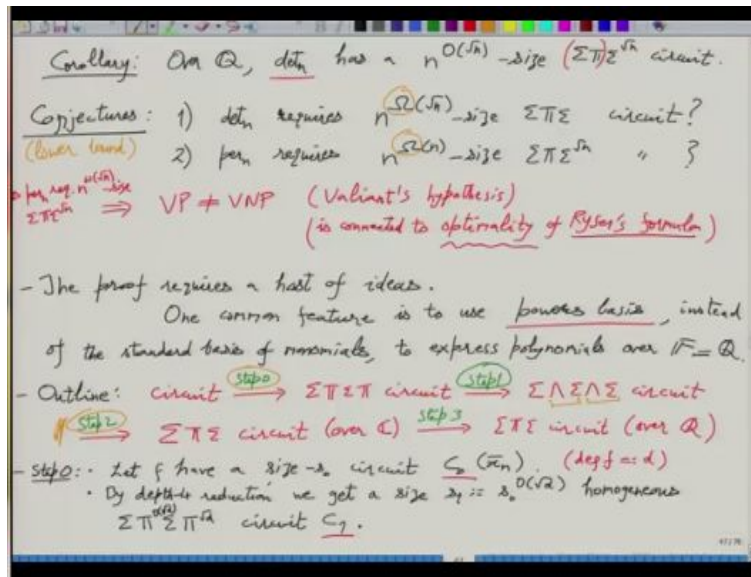 Corollary: Over ℚ, detₙ has a n^{O(√n)}-size (ΣΠ)Σ^{√n} circuit.
Conjectures: 1) detₙ requires n^{Ω(√n)}-size ΣΠΣ circuit?
(lower bound) 2) perₙ requires n^{Ω(n)}-size ΣΠΣ^{√n} " ?
perₙ req. n^{ω(√n)}-size
ΣΠΣ^{√n} ⟹ VP ≠ VNP (Valiant's hypothesis)
(is connected to optimality of Ryser's formula)
- The proof requires a host of ideas.
One common feature is to use powers basis, instead
of the standard basis of monomials, to express polynomials over 𝔽=ℚ.
- Outline: circuit →(Step0) ΣΠΣΠ circuit →(Step1) Σ∧Σ∧Σ circuit
→(Step2) ΣΠΣ circuit (over ℂ) →(Step 3) ΣΠΣ circuit (over ℚ)
- Step0: · Let f have a size-s₀ circuit C₀(x̄ₙ). (deg f =: d)
· By depth-4 reduction we get a size s₁ := s₀^{O(√d)} homogeneous
ΣΠ^{O(√d)}ΣΠ^{√d} circuit C₁.
47/76